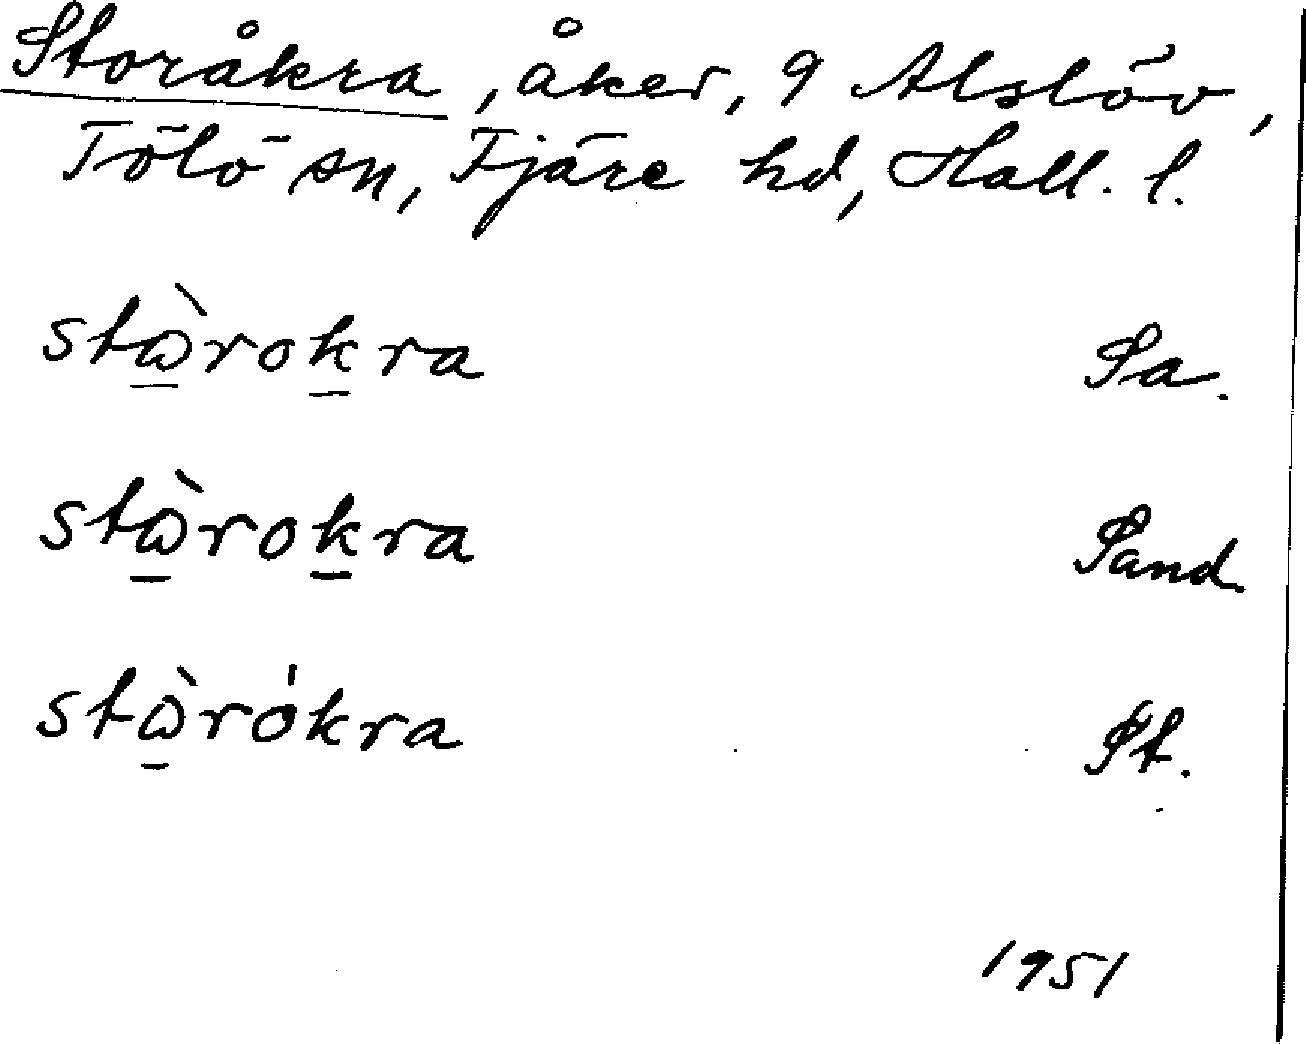 Storåkra, åker, 9 Alslöv,
Tölö sn, Fjäre hd, Hall. l.
stὼ̱roḵra Sa.
stὼ̱roḵra Sand.
stὼ̱rókra St.
1951